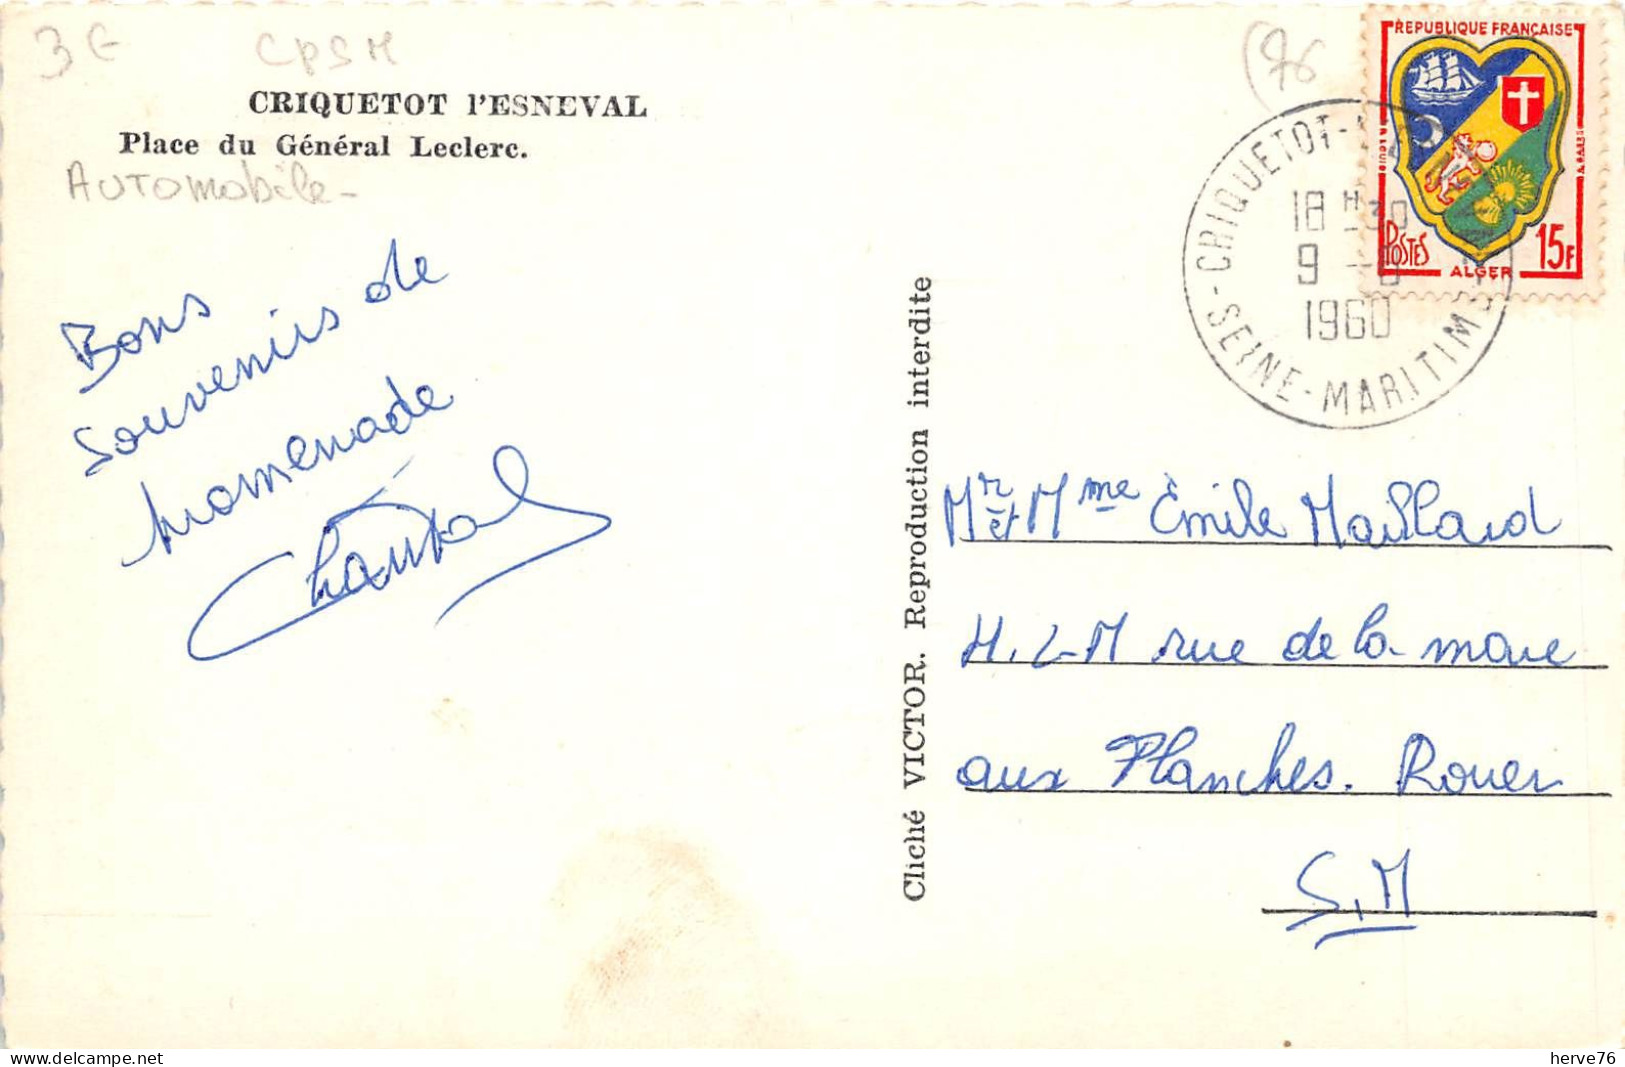 3 €
CPSM
(76
CRIQUETOT l'ESNEVAL
Place du Général Leclerc.
AUTOMOBILE-
Bons
souvenirs de
promenade
Chantal
Cliché VICTOR. Reproduction interdite
REPUBLIQUE FRANÇAISE
POSTES
15F
ALGER
CRIQUETOT-L'
18 H 30
9 -
1960
SEINE-MARITIME
Mr et Mme Émile Maillard
H.LM rue de la mare
aux Planches. Rouen
S.M
delcampe.net
herve76